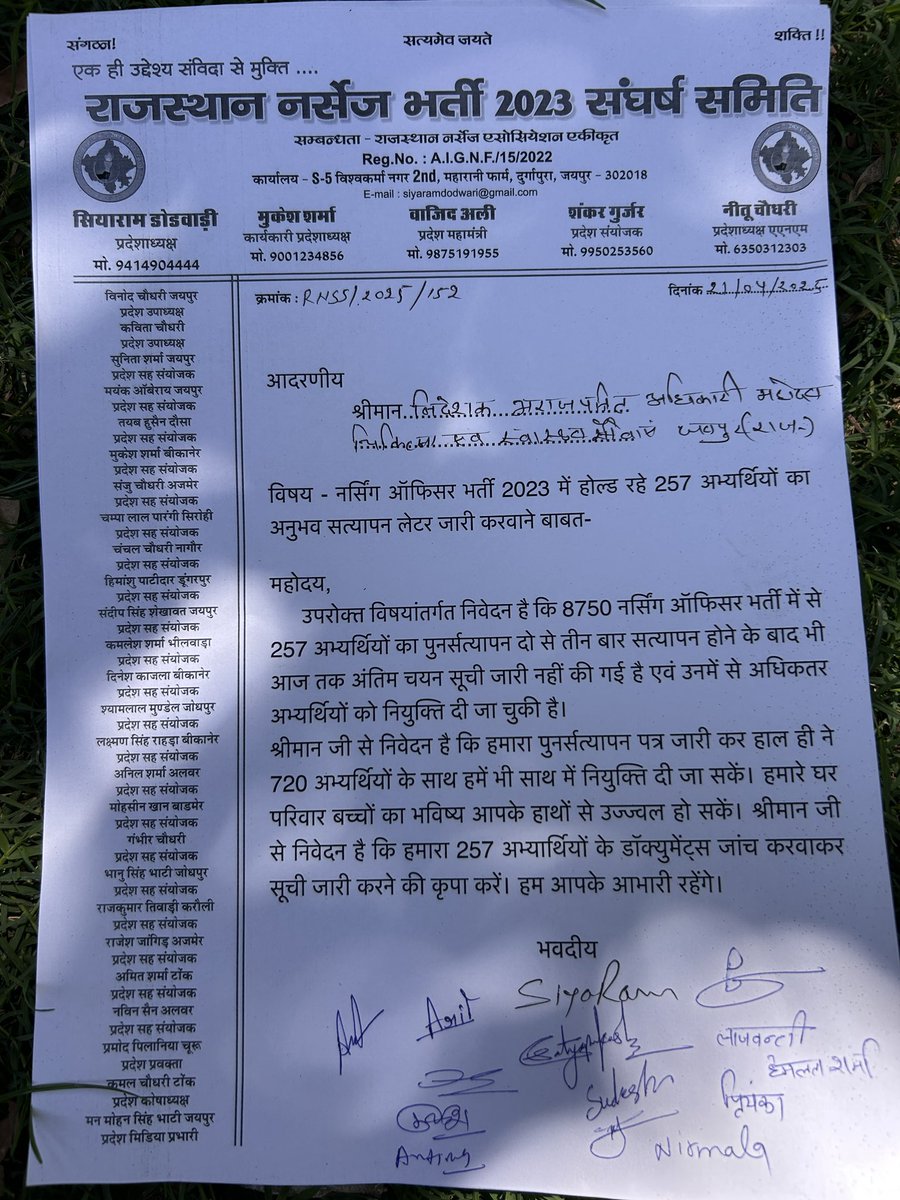 संगठन!
सत्यमेव जयते
शक्ति !!
एक ही उद्देश्य संविदा से मुक्ति ....
राजस्थान नर्सेज भर्ती 2023 संघर्ष समिति
सम्बन्धता - राजस्थान नर्सेज एसोसियेशन एकीकृत
Reg.No. : A.I.G.N.F./15/2022
कार्यालय - S-5 विश्वकर्मा नगर 2nd, महारानी फार्म, दुर्गापुरा, जयपुर - 302018
E-mail : siyaramdodwari@gmail.com
सियाराम डोडवाड़ी
प्रदेशाध्यक्ष
मो. 9414904444
मुकेश शर्मा
कार्यकारी प्रदेशाध्यक्ष
मो. 9001234856
वाजिद अली
प्रदेश महामंत्री
मो. 9875191955
शंकर गुर्जर
प्रदेश संयोजक
मो. 9950253560
नीतू चौधरी
प्रदेशाध्यक्ष एएनएम
मो. 6350312303
विनोद चौधरी जयपुर
प्रदेश उपाध्यक्ष
कविता चौधरी
प्रदेश उपाध्यक्ष
सुनिता शर्मा जयपुर
प्रदेश सह संयोजक
मयंक ऑबेराय जयपुर
प्रदेश सह संयोजक
तयब हुसैन दौसा
प्रदेश सह संयोजक
मुकेश शर्मा बीकानेर
प्रदेश सह संयोजक
संजु चौधरी अजमेर
प्रदेश सह संयोजक
चम्पा लाल पारंगी सिरोही
प्रदेश सह संयोजक
चंचल चौधरी नागौर
प्रदेश सह संयोजक
हिमांशु पाटीदार डूंगरपुर
प्रदेश सह संयोजक
संदीप सिंह शेखावत जयपुर
प्रदेश सह संयोजक
कमलेश शर्मा भीलवाड़ा
प्रदेश सह संयोजक
दिनेश काजला बीकानेर
प्रदेश सह संयोजक
श्यामलाल मुण्डेल जोधपुर
प्रदेश सह संयोजक
लक्ष्मण सिंह राहड़ा बीकानेर
प्रदेश सह संयोजक
अनिल शर्मा अलवर
प्रदेश सह संयोजक
मोहसीन खान बाडमेर
प्रदेश सह संयोजक
गंभीर चौधरी
प्रदेश सह संयोजक
भानु सिंह भाटी जोधपुर
प्रदेश सह संयोजक
राजकुमार तिवाड़ी करौली
प्रदेश सह संयोजक
राजेश जांगिड़ अजमेर
प्रदेश सह संयोजक
अमित शर्मा टोंक
प्रदेश सह संयोजक
नविन सैन अलवर
प्रदेश सह संयोजक
प्रमोद पिलानिया चूरू
प्रदेश प्रवक्ता
कमल चौधरी टोंक
प्रदेश कोषाध्यक्ष
मन मोहन सिंह भाटी जयपुर
प्रदेश मिडिया प्रभारी
क्रमांक : RNSS/2025/152
दिनांक 21/04/2025
आदरणीय
श्रीमान निदेशक अराजपत्रित अधिकारी महोदय
चिकित्सा एवं स्वास्थ्य सेवाएं जयपुर (राज.)
विषय - नर्सिंग ऑफिसर भर्ती 2023 में होल्ड रहे 257 अभ्यर्थियों का
अनुभव सत्यापन लेटर जारी करवाने बाबत-
महोदय,
उपरोक्त विषयांतर्गत निवेदन है कि 8750 नर्सिंग ऑफिसर भर्ती में से
257 अभ्यर्थियों का पुनर्सत्यापन दो से तीन बार सत्यापन होने के बाद भी
आज तक अंतिम चयन सूची जारी नहीं की गई है एवं उनमें से अधिकतर
अभ्यर्थियों को नियुक्ति दी जा चुकी है।
श्रीमान जी से निवेदन है कि हमारा पुनर्सत्यापन पत्र जारी कर हाल ही ने
720 अभ्यर्थियों के साथ हमें भी साथ में नियुक्ति दी जा सकें। हमारे घर
परिवार बच्चों का भविष्य आपके हाथों से उज्ज्वल हो सकें। श्रीमान जी
से निवेदन है कि हमारा 257 अभ्यार्थियों के डॉक्युमेंट्स जांच करवाकर
सूची जारी करने की कृपा करें। हम आपके आभारी रहेंगे।
भवदीय
Siyaram
लाजवन्ती
शर्मा
प्रियंका
Nirmala